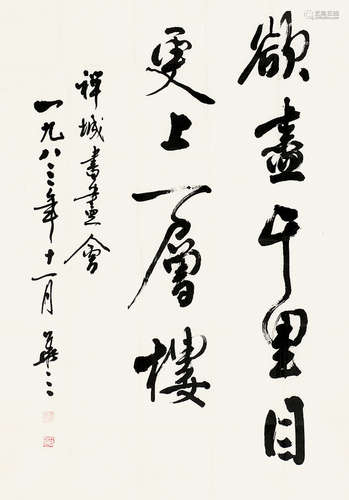 欲盡千里目
更上一層樓
禅城書畫會
一九八三年十一月